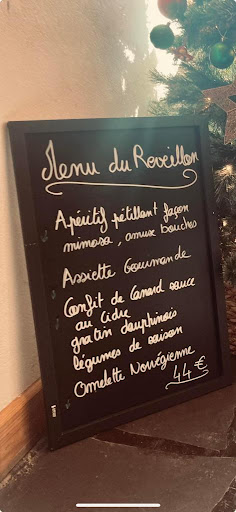 Menu du Réveillon
Apéritif pétillant façon
mimosa, amuse bouches
Assiette Gourmande
Confit de Canard sauce
au Cidre
gratin dauphinois
légumes de saison
Omelette Norvégienne
44 €